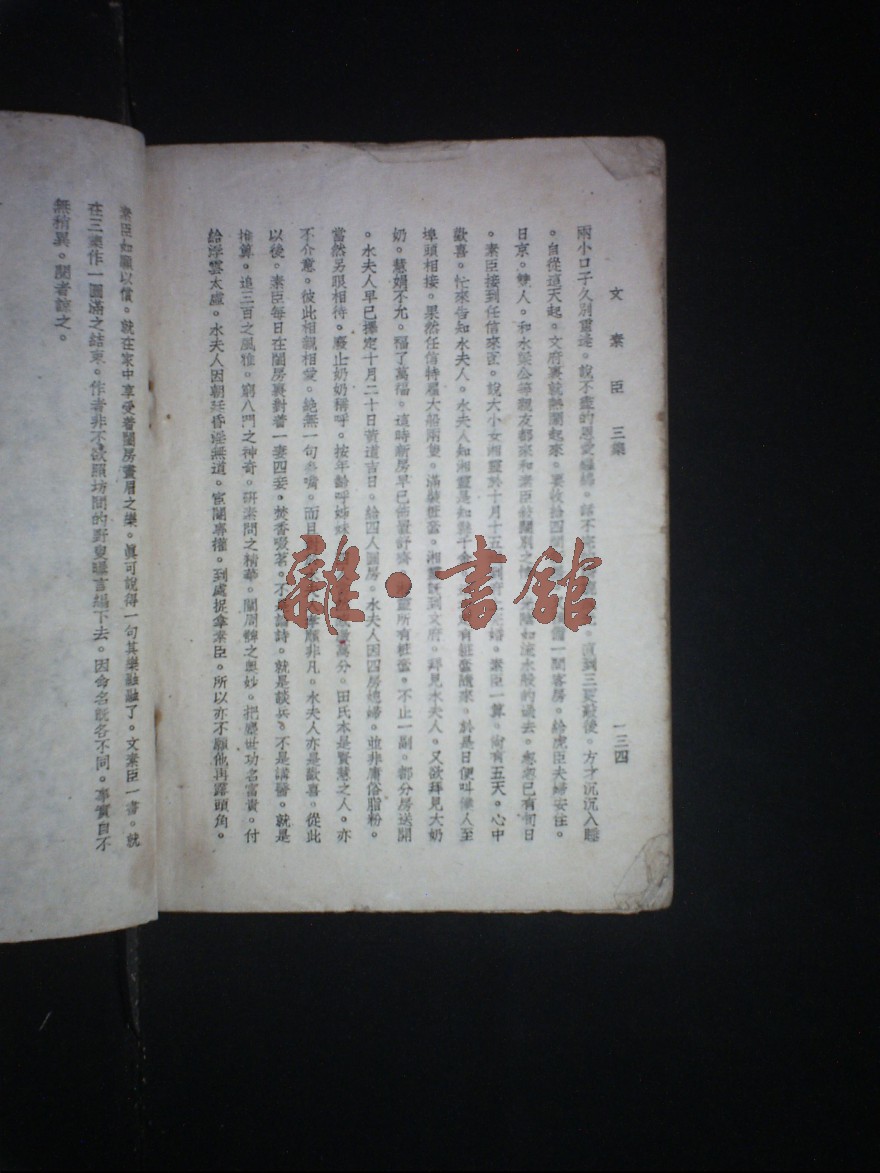 文素臣 三集
一三四
兩小口子久別重逢。說不盡的恩愛纏綿。 直到三更敲後。方才沉沉入睡
。自從這天起。文府裏就熱鬧起來。要收拾四間 一間客房。給虎臣夫婦安住。
日京。雙人。和水侯公等親友都來和素臣敍闊別之 如流水般的過去。忽忽已有旬日
。素臣接到任信來函。說大小女湘靈於十月十五 素臣一算。尚有五天。心中
歡喜。忙來告知水夫人。水夫人知湘靈是知縣千金 有粧奩隨來。於是日便叫僕人至
埠頭相接。果然任信特雇大船兩隻。滿裝粧奩。湘靈 到文府。拜見水夫人。又欲拜見大奶
奶。慧娟不允。福了萬福。這時新房早已佈置舒齊。湘靈所有粧奩。不止一副。都分房送開
。水夫人早已擇定十月二十日黃道吉日。給四人圓房。水夫人因四房媳婦。並非庸俗脂粉。
當然另眼相待。廢止奶奶稱呼。按年齡呼姊妹 萬分。田氏本是賢慧之人。亦
不介意。彼此相親相愛。絕無一句參嘴。而且 孝順非凡。水夫人亦是歡喜。從此
以後。素臣每日在閨房裏對著一妻四妾。焚香啜茗。不是論詩。就是談兵。不是講醫。就是
推算。追三百之風雅。窮八門之神奇。研素問之精華。闡周髀之奧妙。把塵世功名富貴。付
給浮雲太虛。水夫人因朝廷昏淫無道。宦閹專權。到處捉拿素臣。所以亦不願他再露頭角。
素臣如願以償。就在家中享受着閨房畫眉之樂。眞可說得一句其樂融融了。文素臣一書。就
在三集作一圓滿之結束。作者非不欲照坊間的野叟曝言編下去。因命名旣各不同。事實自不
無稍異。閱者諒之。
雜·書館